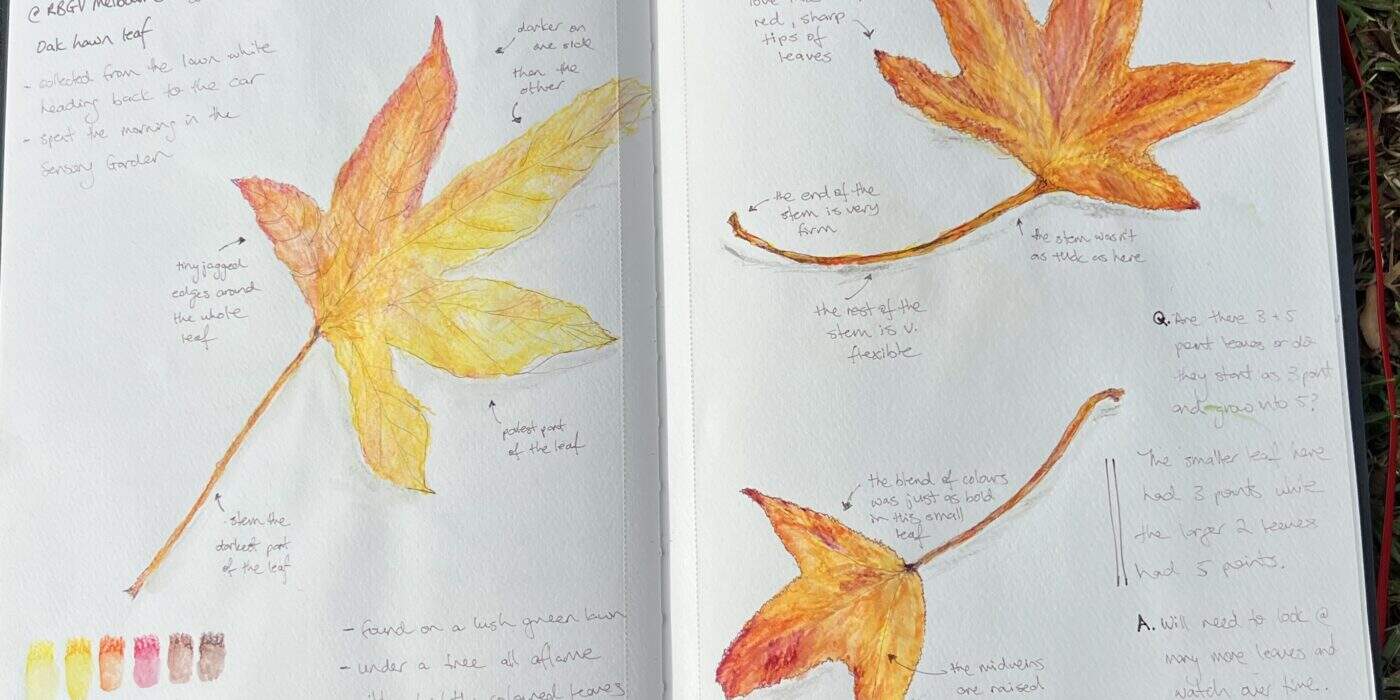 @ RBGV Melbourne
Oak hawn leaf
- collected from the lawn white
heading back to the car
- spent the morning in the
Sensory Garden
darker on
one side
than the
other
tiny jagged
edges around
the whole
leaf
palest part
of the leaf
stem the
darkest part
of the leaf
- found on a lush green lawn
- under a tree all aflame
coloured leaves
red, sharp
tips of
leaves
the end of the
stem is very
firm
the stem wasn't
as thick as here
the rest of the
stem is v.
flexible
Q. Are there 3 + 5
point leaves or do
they start as 3 point
and grow into 5?
the blend of colours
was just as bold
in this small
leaf
The smaller leaf here
had 3 points while
the larger 2 leaves
had 5 points.
A. Will need to look @
many more leaves and
watch over time
the midveins
are raised